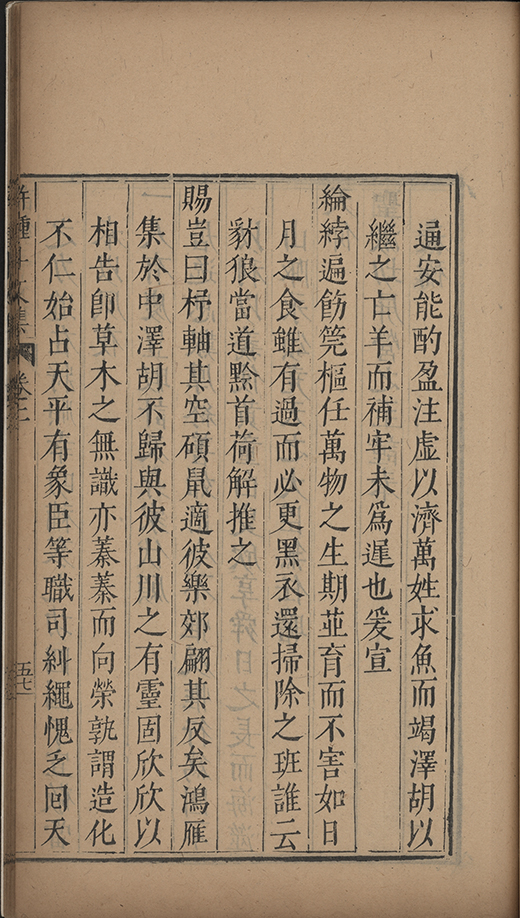 通安能酌盈注虛以濟萬姓求魚而竭澤胡以
繼之亡羊而補牢未爲遲也爰宣
綸綍遍飭筦樞任萬物之生期並育而不害如日
月之食雖有過而必更黑衣還掃除之班誰云
豺狼當道黔首荷解推之
賜豈曰杼軸其空碩鼠適彼樂郊翩其反矣鴻雁
集於中澤胡不歸與彼山川之有靈固欣欣以
相告卽草木之無識亦蓁蓁而向榮孰謂造化
不仁始占天平有象臣等職司糾繩愧乏回天
卷上
五十七